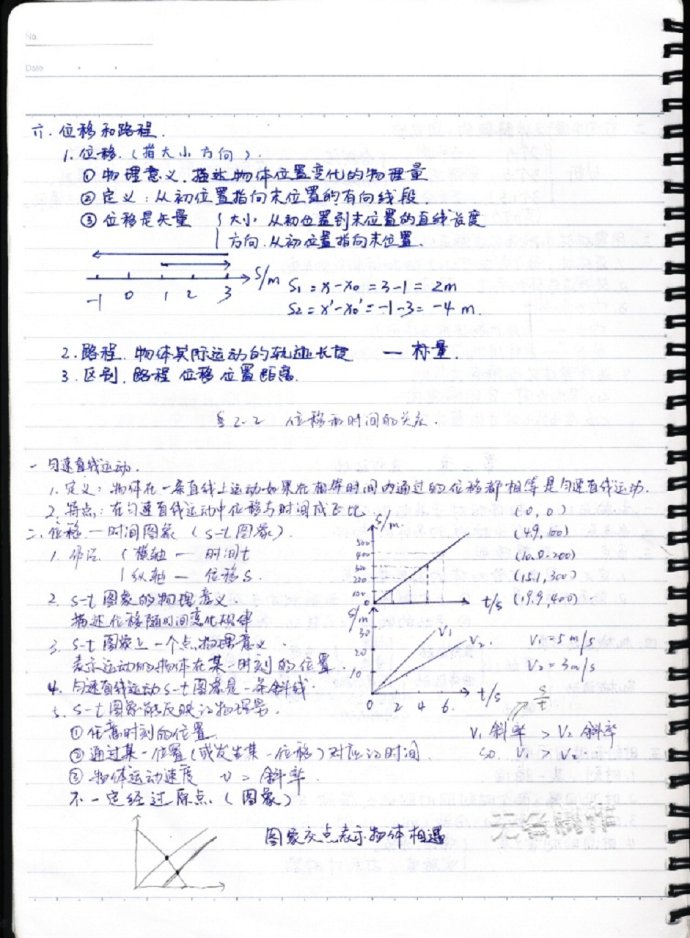 No.
Date
六. 位移和路程.
1. 位移. (指大小方向).
① 物理意义. 描述物体位置变化的物理量
② 定义: 从初位置指向末位置的有向线段
③ 位移是矢量 { 大小. 从初位置到末位置的直线长度
方向. 从初位置指向末位置.
-1 0 1 2 3 S/m
S₁ = x-x₀ = 3-1 = 2m
S₂ = x'-x₀' = -1-3 = -4 m.
2. 路程. 物体实际运动的轨迹长度 — 标量.
3. 区别. 路程 位移 位置 距离.
§2-2 位移和时间的关系.
一 匀速直线运动.
1. 定义: 物体在一条直线上运动如果在相等时间内通过的位移都相等是匀速直线运动.
2. 特点: 在匀速直线运动中位移与时间成正比.
二. 位移—时间图象 (s-t图象).
1. { 横轴 — 时间t
纵轴 — 位移s.
2. s-t图象的物理意义.
描述位移随时间变化规律
3. s-t图象上一个点物理意义
表示运动的物体在某一时刻的位置.
4. 匀速直线运动s-t图象是一条斜线.
5. s-t图象能反映的物理量.
① 任意时刻的位置.
② 通过某一位置(或发生某一位移)对应的时间.
③ 物体运动速度 v = 斜率.
不一定经过原点. (图象)
S/m
500
400
300
200
100
0
t/s
(0, 0)
(4.9, 100)
(10.0, 200)
(15.1, 300)
(19.9, 400)
S/m
30
20
10
0 2 4 6.
t/s
V₁
V₂.
V₁ = 5 m/s
V₂ = 3m/s
s/t
V₁ 斜率 > V₂ 斜率
so V₁ > V₂.
图象交点表示物体相遇